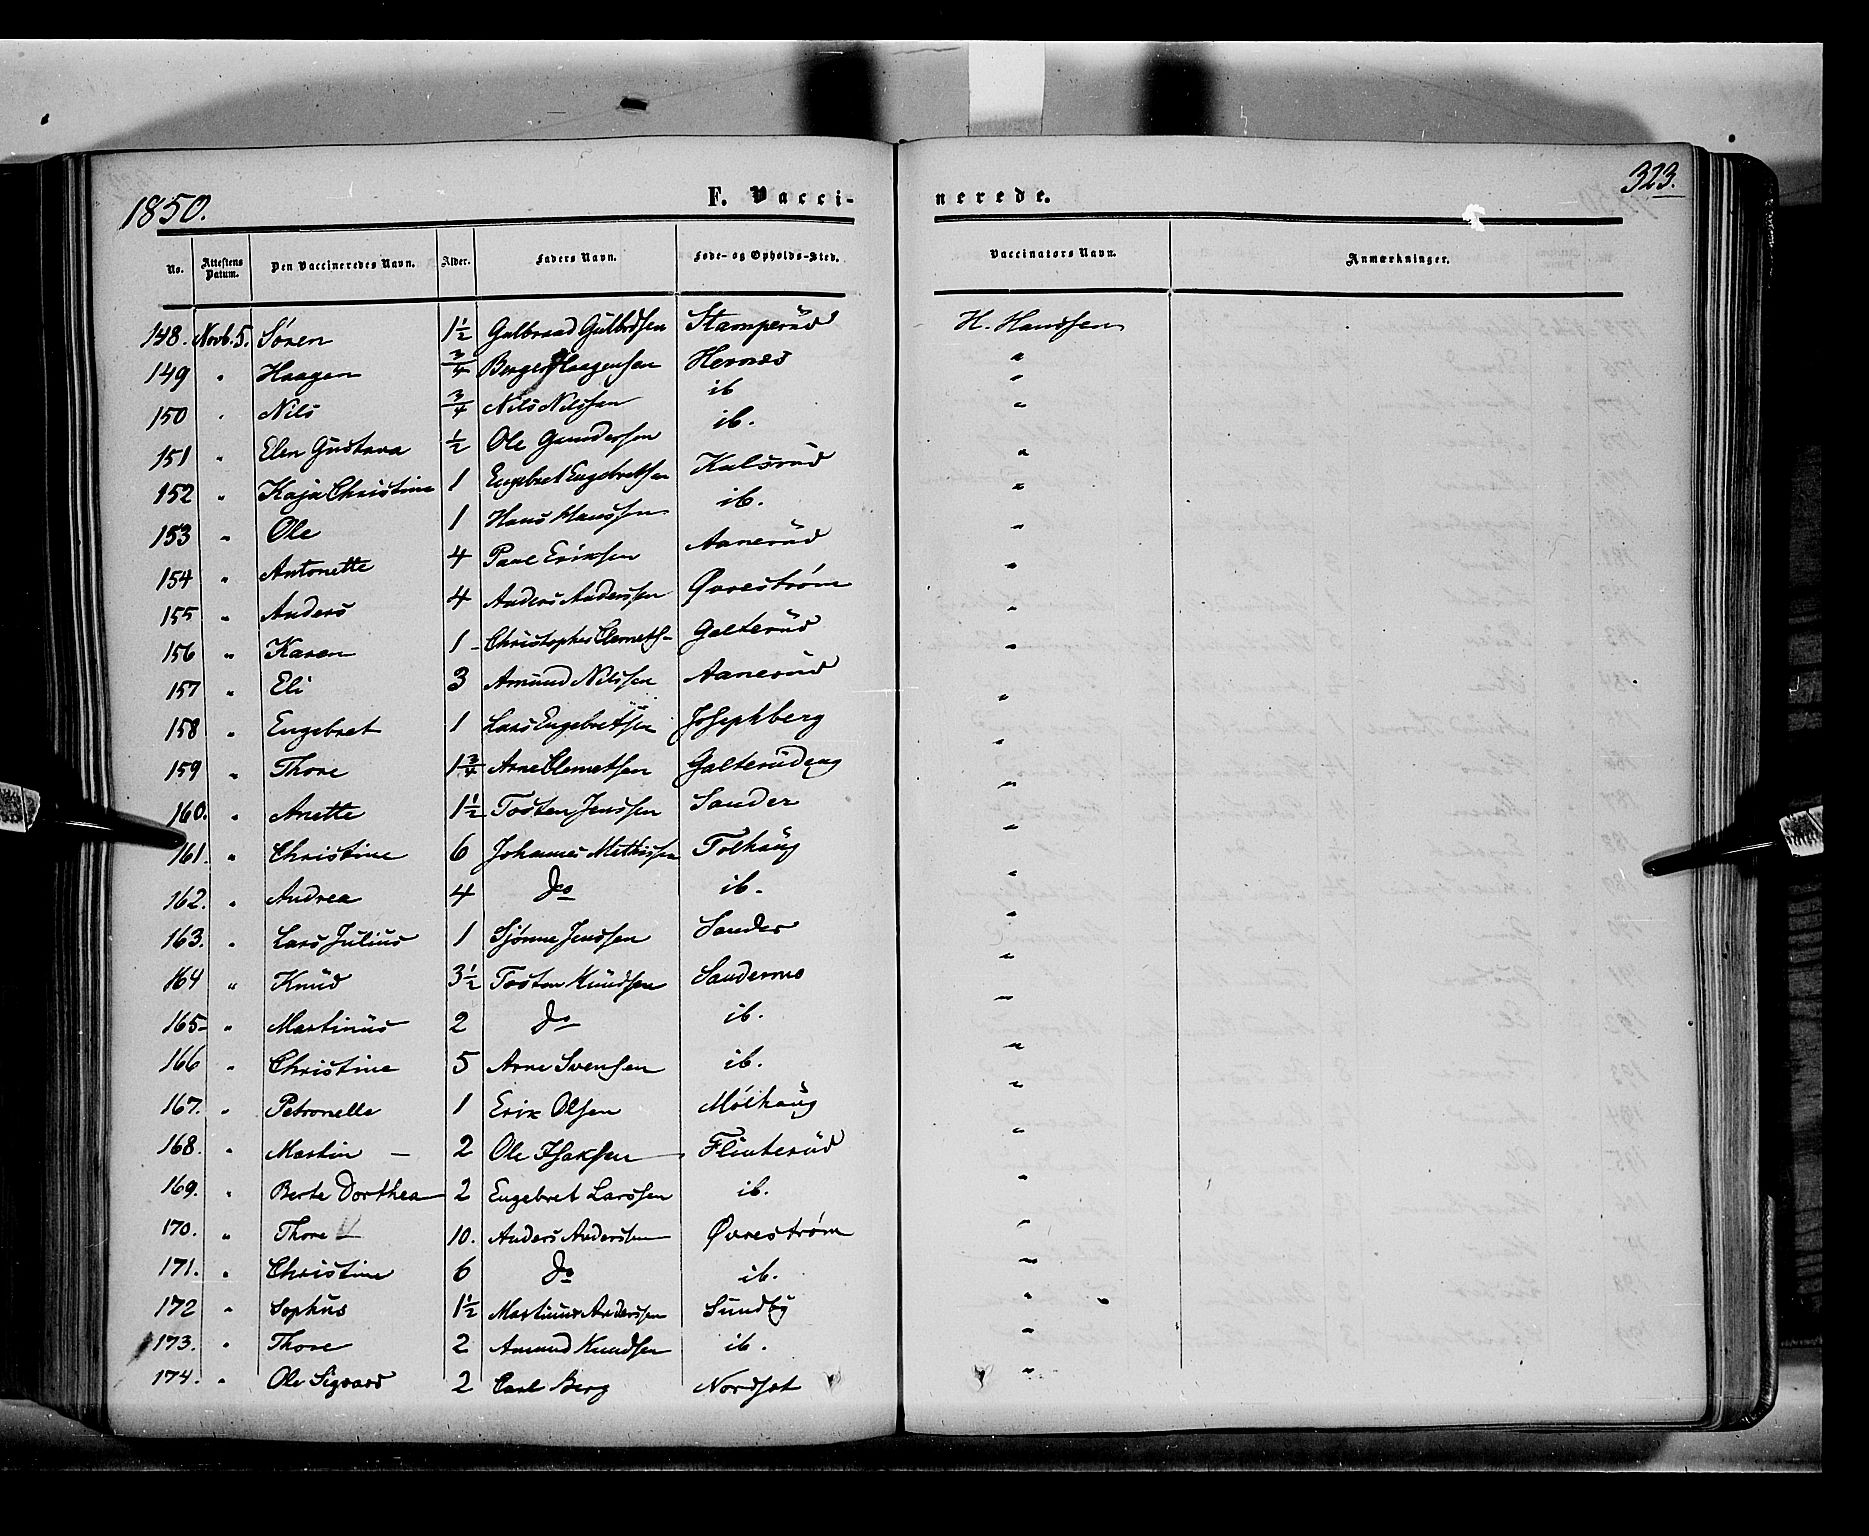 1850. F. Vaccinerede. 323.
No. Attestens Datum. Den Vaccineredes Navn. Alder. Faders Navn. Føde- og Opholds-Sted. Vaccinators Navn. Anmærkninger.
148. Novb. 5. Søren 1½ Gulbrand Gulbrdsen Stamperud H. Handsen
149 " Haagen ¾ Berger Haagensen Hernæs "
150 " Nils ¾ Nils Nilssen ib "
151 " Elen Gustava ½ Ole Gundersen ib. "
152 " Kaja Christine 1 Engebret Engebretsen Kulsrud "
153 " Ole 1 Hans Hanssen ib. "
154 " Antonette 4 Paul Eriksen Aanerud "
155 " Anders 4 Anders Anderssen Øvrestrøm "
156 " Karen 1 Christopher Clemets- Galterud "
157 " Eli 3 Amund Nilssen Aanerud "
158 " Engebret 1 Lars Engebretsen Josephberg "
159 " Thore 1¾ Arne Clemetsen Galterudeng "
160. " Anette 1½ Tosten Jenssen Sander "
161. " Christine 6 Johannes Mathissen Tolhaug "
162. " Andrea 4 Do ib. "
163. " Lars Julius 1 Sjønne Jenssen Sander "
164 " Knud 3½ Tosten Knudsen Sandernæs "
165 " Martinus 2 Do ib. "
166 " Christine 5 Arne Svensen ib. "
167. " Petronelle 1 Erik Olsen Møihaug "
168. " Martin 2 Ole Isaksen Flinterud "
169. " Berte Dorthea 2 Engebret Larssen ib. "
170. " Thore 10. Anders Anderssen Øvrestrøm "
171. " Christine 6 Do ib. "
172 " Sophus 1½ Martinus Anderssen Sundby "
173. " Thore 2 Amund Knudsen ib. "
174. " Ole Sigvard 2 Carl Berg Nordset "